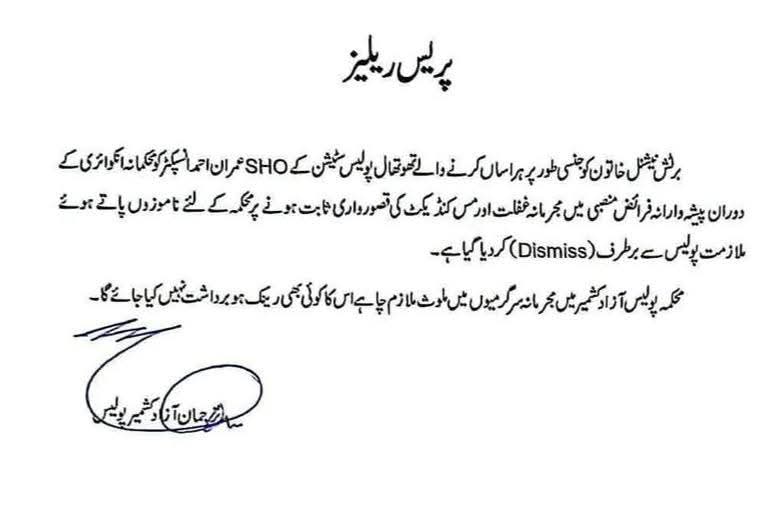 پریس ریلیز
برٹش نیشنل خاتون کو جنسی طور پر ہراساں کرنے والے تھوتھال پولیس سٹیشن کے SHO عمران احمد انسپکٹر کو محکمانہ انکوائری کے
دوران پیشہ وارانہ فرائض منصبی میں مجرمانہ غفلت اور مس کنڈیکٹ کی قصورواری ثابت ہونے پر محکمہ کے لئے ناموزوں پاتے ہوئے
ملازمت پولیس سے برطرف (Dismiss) کر دیا گیا ہے۔
محکمہ پولیس آزاد کشمیر میں مجرمانہ سرگرمیوں میں ملوث ملازم چاہے اس کا کوئی بھی رینک ہو برداشت نہیں کیا جائے گا۔
ترجمان آزاد کشمیر پولیس